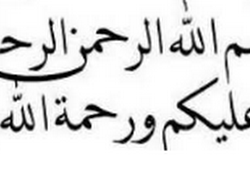 م الله الرحمن الرح
عليكم ورحمة الله